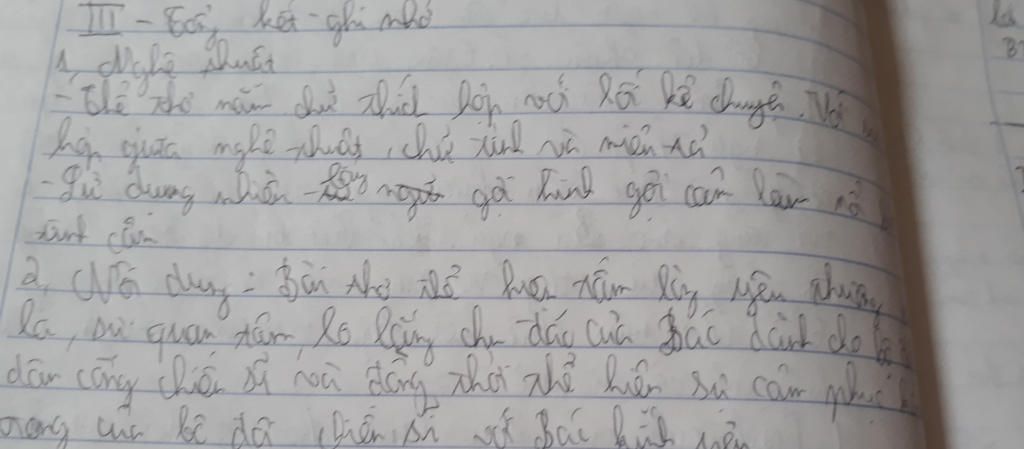 III - Tổng kết - ghi nhớ
1, Nghệ thuật
- Thể thơ năm chữ thích hợp với lối kể chuyện. Với
hợp giữa nghệ thuật, chữ tình và miên tả
- Sử dụng nhiều từ láy gợi hình gợi cảm làm nổ
tình cảm
2, Nội dung: Bài thơ thể hiện tấm lòng yêu thương
là, sự quan tâm, lo lắng chu đáo của Bác dành cho
dân công chiến sĩ và đồng thời thể hiện sự cảm phục
trọng của bộ đội chiến sĩ với Bác kính yêu